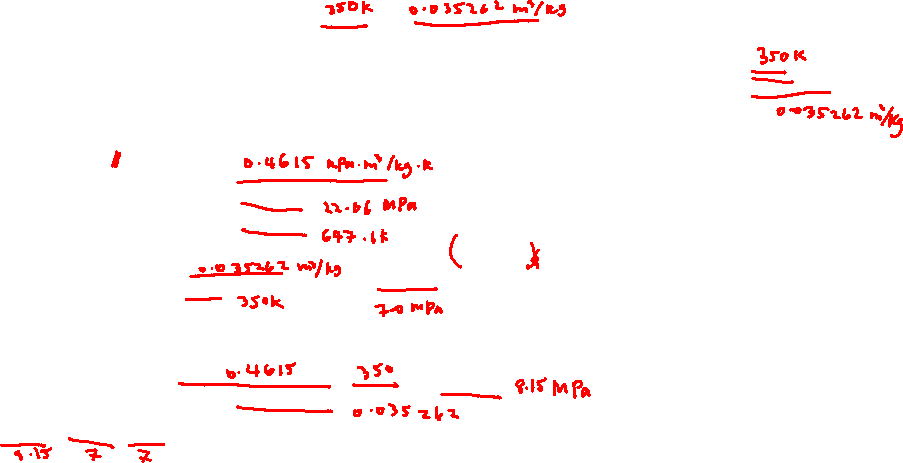 350K 0.035262 m³/kg
350K
0.035262 m³/kg
0.4615 kPa·m³/kg·K
22.06 MPa
647.1K
( )
0.035262 m³/kg
350K
7.0 MPa
0.4615 350
8.15 MPa
0.035262
8.15 7 7